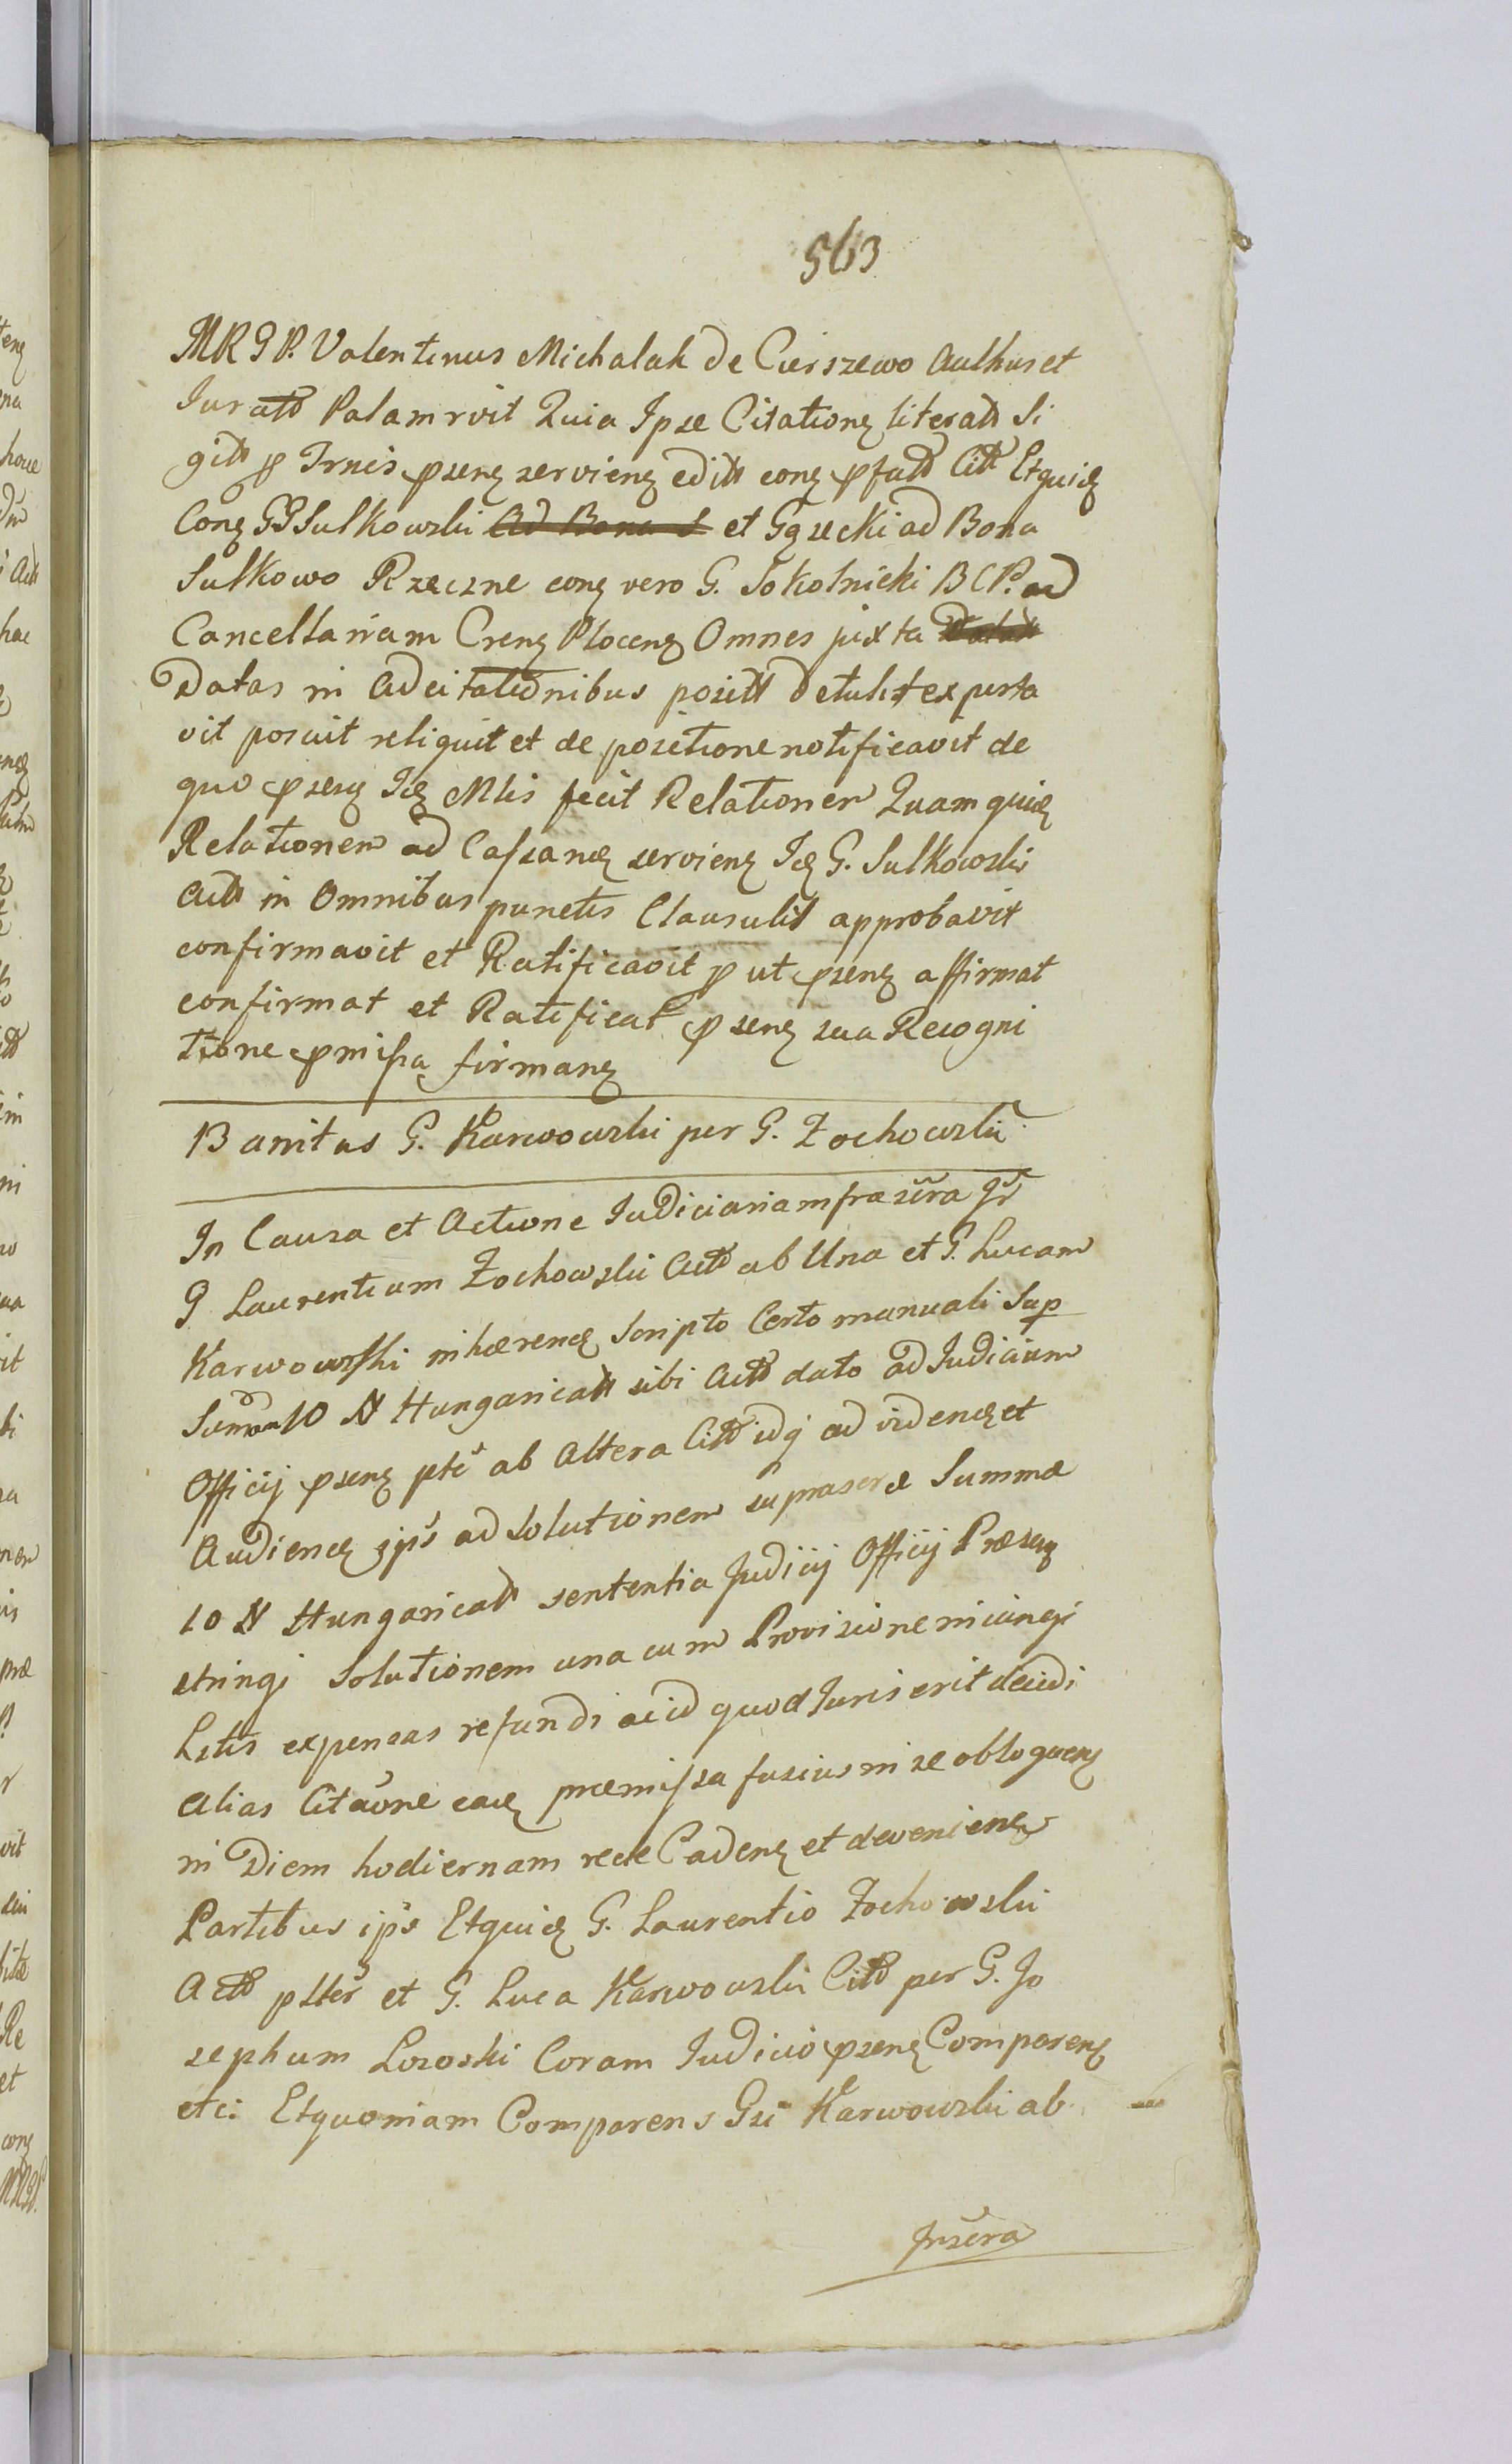 563
MRGP. Valentinus Michalak de Cierszewo Aulkus et
Juratt Palam rvit Quia Ipse Citationẽ literatt Si
gitt p Trnis psenẽ servienẽ editt conẽ pfatt Citt Etquidẽ
Conẽ GG Sulkowski Ad Bona S et Gąsecki ad Bona
Sulkowo Rzeczne conẽ vero G. Sokolnicki BCP. ad
Cancellariam Crenẽ Plocenẽ Omnes juxta
Datas in Adcitationibus positt detulit exporta
vit posuit reliquit et de positione notificavit de
quo psenẽ Idẽ Mlis fecit Relationem Quam quidẽ
Relationem ad Cassandẽ servienẽ Idẽ G. Sulkowski
Actt in Omnibus punctis Clausulis approbavit
confirmavit et Ratificavit p ut psenẽ affirmat
confirmat et Ratificat psenẽ sua Recogni
tione pmissa firmanẽ
Banitus G. Karwowski per G. Zochowski
In Causa et Actione Judiciaria infrascra Gr
G Laurentium Zochowski Actt ab Una et G. Lucam
Karwowski inhærendẽ Scripto Certo manuali Sup
Summam 10 N Hungaricatt sibi Actt dato ad Judicium
Officij psenẽ ptĕ ab Altera Citt idq ad videndẽ et
Audiendẽ ips ad Solutionem suprascræ Summæ
10 N Hungaricatt sententia Judicij Officij Præsenẽ
stringi Solutionem una cum Provisione inicingi
Litis expensas refundi ac id quod Juris erit decidi
alias Citaone eadẽ præmissa fusius in se obloquenẽ
in Diem hodiernam recte Cadenẽ et devenienẽ
Partibus ips Etquidẽ G. Laurentio Zochowski
Actt plter et G. Luca Karwowski Citt per G. Jo
sephum Lososki Coram Judicio psenẽ Comparenẽ
etc: Etquoniam Comparens Gsi Karwowski ab
Insera